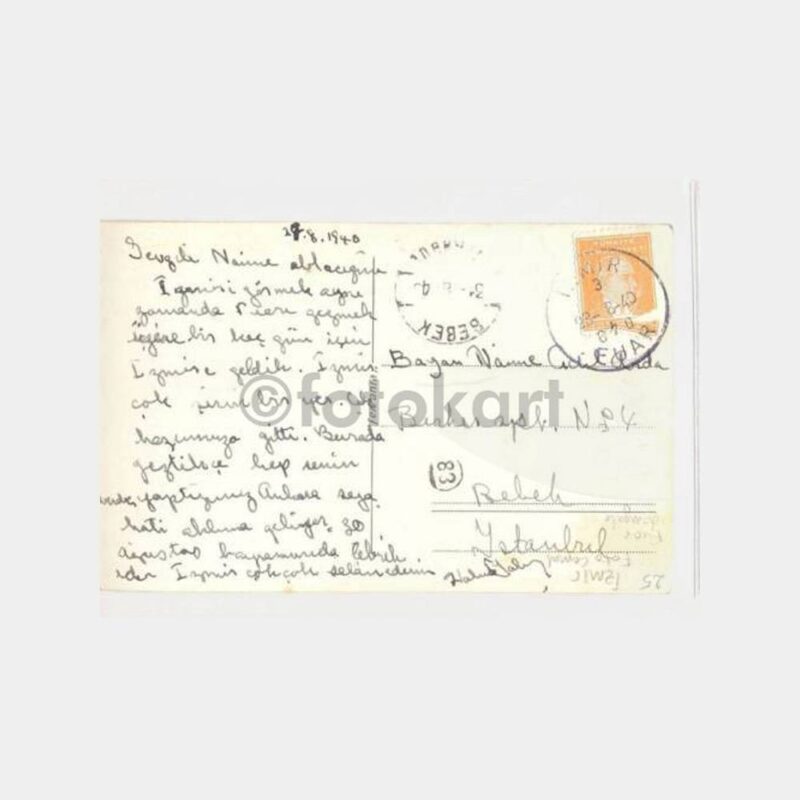 29.8.1940
Sevgili Naime ablacığım
İzmiri görmek aynı
zamanda Fuarı gezmek
üzere bir kaç gün için
İzmire geldik. İzmir
çok şirin bir yer.
hoşumuza gitti. Burada
geztikçe hep senin
yaptığımız Ankara seya
hati aklıma geliyor. 30
ağustos bayramınıda tebrik
eder İzmir çok çok selâm ederim
BEBEK
İZMİR
FUAR
Bayan Naime
apt. No 4
83
Bebek
İstanbul
©fotokart
İzmir
25